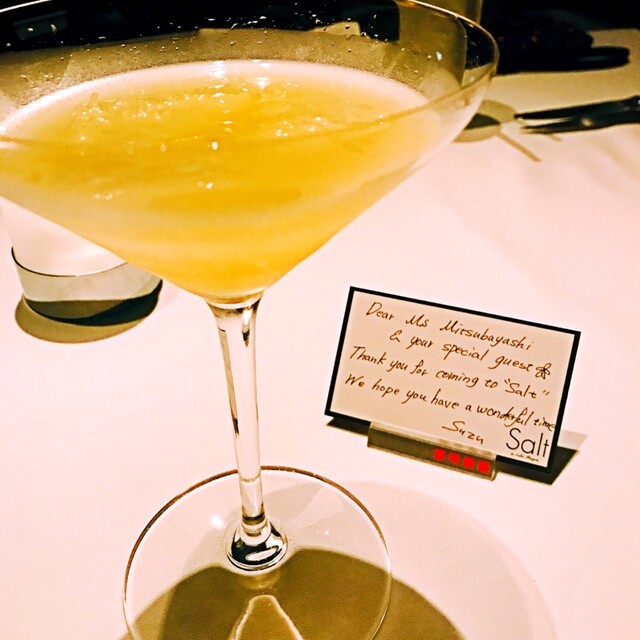 Dear Ms Mitsubayashi
& your special guest
Thank you for coming to "Salt"
We hope you have a wonderful time
Suzu
Salt